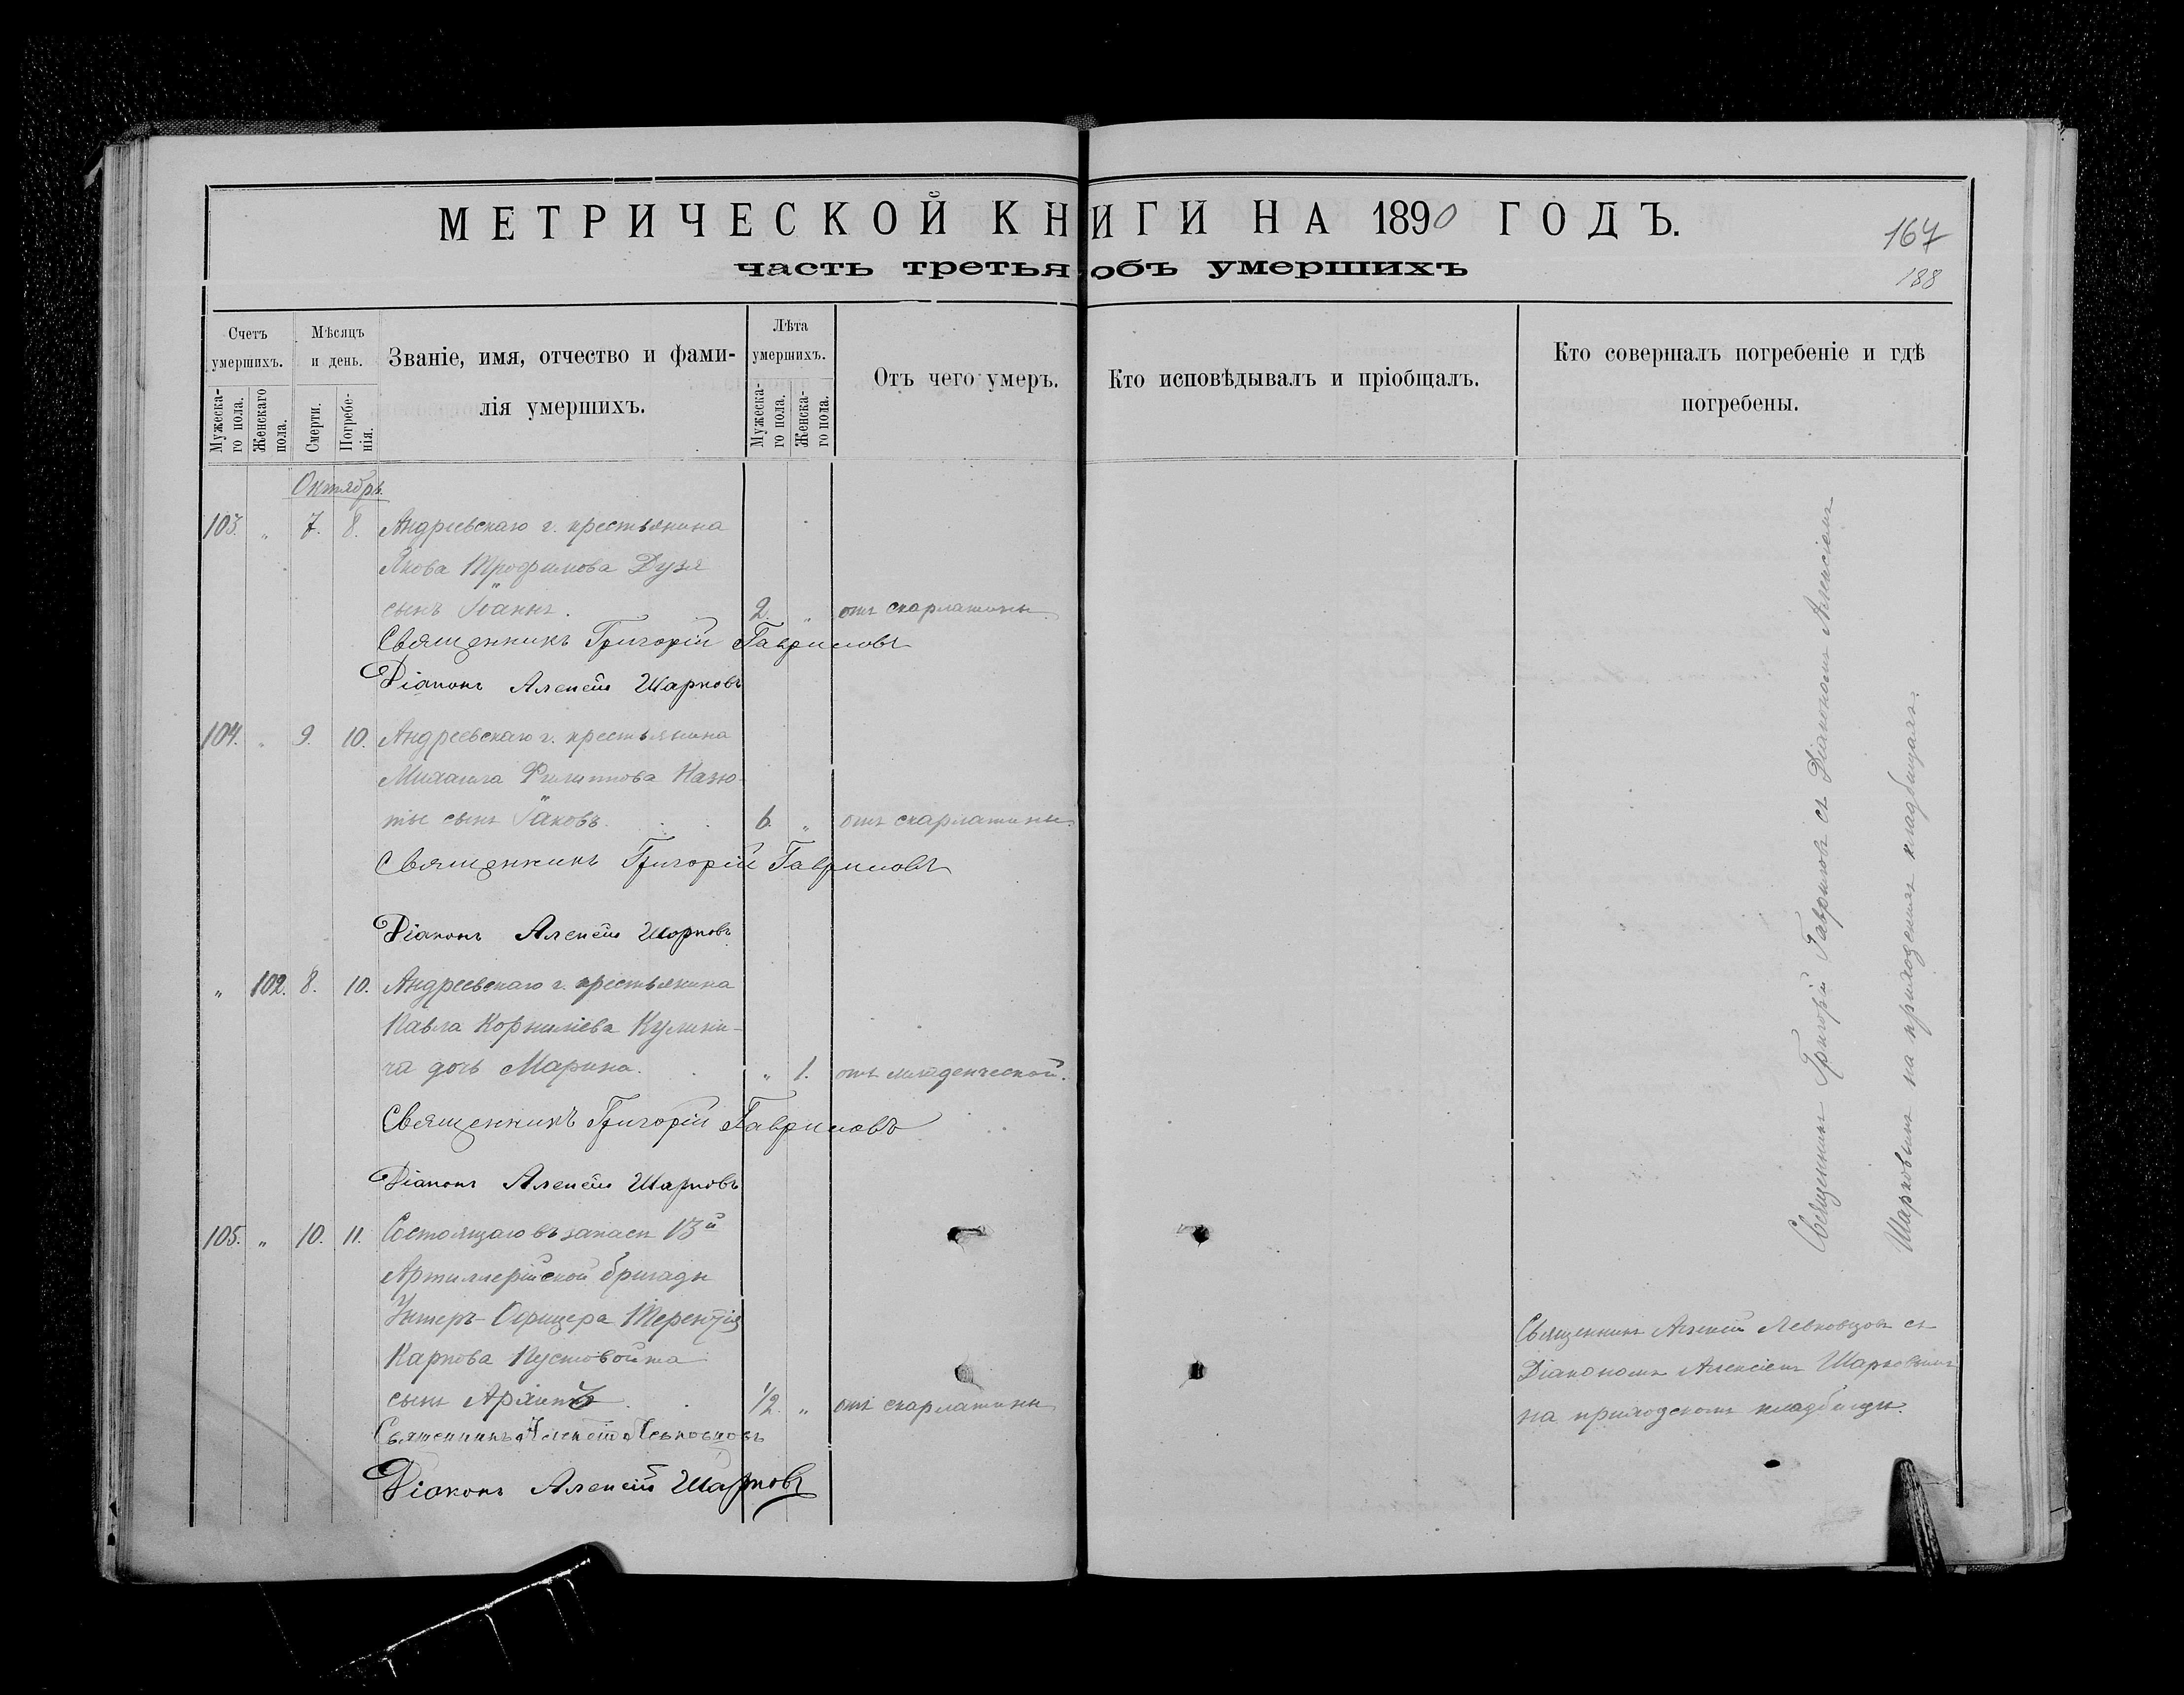 МЕТРИЧЕСКОЙ КНИГИ НА 1890 ГОДЪ.
167
часть третья объ умершихъ
188
Счетъ умершихъ.
Мужеска-го пола.
Женскаго пола.
Мѣсяцъ и день.
Смерти.
Погребе-нія.
Званіе, имя, отчество и фами-
лія умершихъ.
Лѣта умершихъ.
Мужеска-го пола.
Женска-го пола.
Отъ чего умеръ.
Кто исповѣдывалъ и пріобщалъ.
Кто совершалъ погребеніе и гдѣ
погребены.
Октябрь
103. " 7. 8. Андреевскаго г. крестьянина
Якова Трофимова Дузя
сынъ Іоаннъ. 2. " отъ скарлатины.
Священникъ Григорій Гавриловъ
Діаконъ Алексѣй Шарковъ
104. " 9. 10. Андреевскаго г. крестьянина
Михаила Филиппова
сынъ Іаковъ. 6. " отъ скарлатины.
Священникъ Григорій Гавриловъ
Діаконъ Алексѣй Шарковъ
" 102. 8. 10. Андреевскаго г. крестьянина
Павла Корниліева
дочь Марина. " 1. отъ
Священникъ Григорій Гавриловъ
Діаконъ Алексѣй Шарковъ
Священникъ Григорій Гавриловъ съ Діакономъ Алексіемъ
Шарковымъ на приходскомъ кладбищѣ.
105. " 10. 11. Состоящаго въ запасѣ 13й
Артиллерійской бригады
Унтеръ-Офицера Терентія
Карпова Пустовойта
сынъ 1/2. " отъ скарлатины
Священникъ Алексѣй Левковцовъ
Діаконъ Алексѣй Шарковъ
Священникъ Алексѣй Левковцовъ съ
Діакономъ Алексіемъ Шарковымъ
на приходскомъ кладбищѣ.